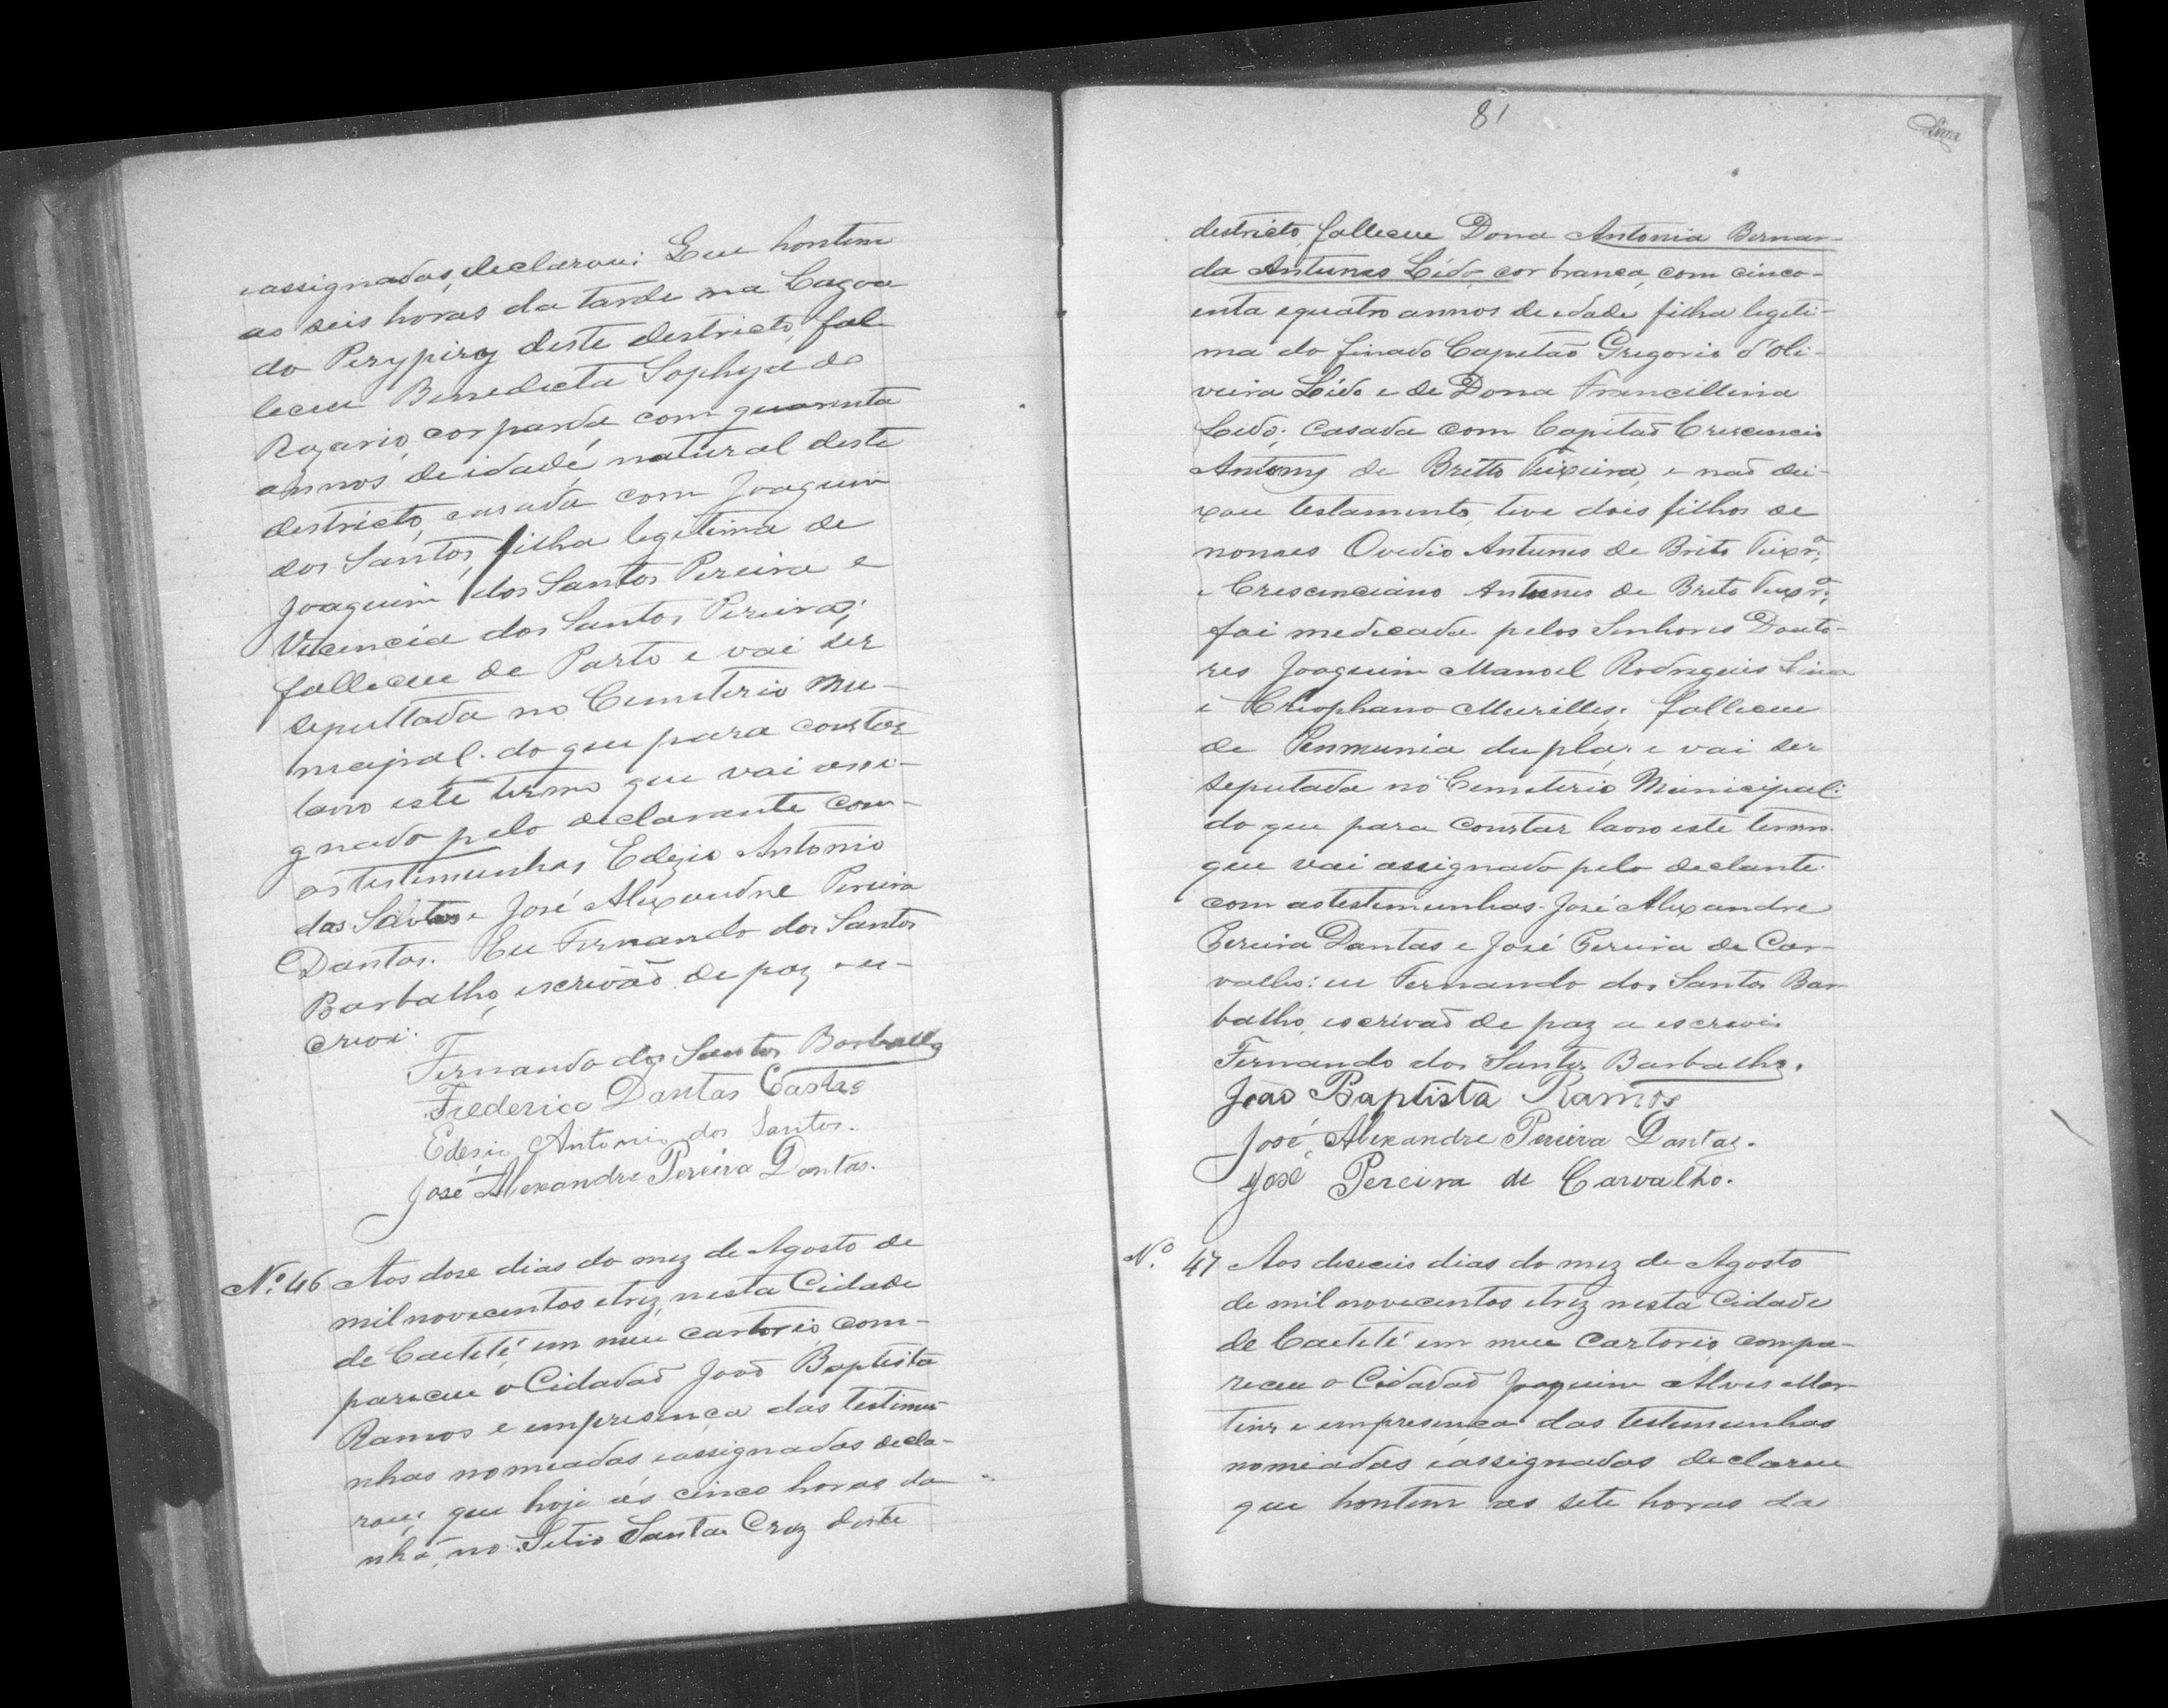 eassignadas, declarou: Que hontem
as seis horas da tarde na Lagoa
do Perypiry deste destricto, fal
leceu Benedicta Sophya do
Rozario, cor parda, com quarenta
annos de idade, natural deste
destricto, casada com Joaquim
dos Santos, filha legitima de
Joaquim dos Santos Pereira e
Vicencia dos Santos Pereira;
falleceu de Parto e vai ser
sepultada no Cemeterio Mu-
nicipal. do que para constar
lavro este termo que vai assi-
gnado pelo declarante com
as testimunhas Edezio Antonio
dos Santos e José Alexandre Pereira
Dantas. Eu Fernando dos Santos
Barbalho, escrivão de paz o es-
crivi.
Fernando dos Santos Barbalho
Frederico Dantas Castro
Edesio Antonio dos Santos.
José Alexandre Pereira Dantas.
Nº 46 Aos dose dias do mez de Agosto de
mil novecentos etrez, nesta Cidade
de Caetité, em meu cartorio com-
pareceu o Cidadaõ Joaõ Baptista
Ramos e empresença das testimu-
nhas nomeadas eassignadas decla-
rou; que hoje ás cinco horas da
nhã, no Setio Santa Cruz deste
81
Lima
destricto, falleceu Dona Antonia Bernar-
da Antunes Lédo, cor branca, com cinco-
enta equatro annos de edade, filha legeti-
ma do finado Capitaõ Gregorio d'Oli-
veira Lédo e de Dona Francillina
Lédo; casada com Capitaõ Crescencio
Antony de Britto Teixeira, e naõ dei-
xou testamento, teve dois filhos de
nomes Ovedio Antunes de Brito Teixrª.
e Crescenciano Antunes de Brito Teixrª;
foi medicada pelos Senhores Douto-
res Joaquim Manoel Rodrigues Lima
e Cleophano Meirelles; falleceu
de Penmunia dupla, e vai ser
seputada no Cemeterio Municipal:
do que para constar lavro este termo
que vai assignado pelo declante
com astestemunhas José Alexandre
Pereira Dantas e José Pereira de Car-
valho: eu Fernando dos Santos Bar-
balho, escrivaõ de paz o escrevi.
Fernando dos Santos Barbalho.
João Baptista Ramos
José Alexandre Pereira Dantas.
José Pereira de Carvalho.
Nº. 47 Aos deseceis dias do mez de Agosto
de mil novecentos etrez nesta Cidade
de Caetité em meu cartorio compa-
receu o Cidadaõ Joaquim Alves Mar-
tins e empresença das testemunhas
nomeadas eassignadas declarou
que hontem as sete horas da